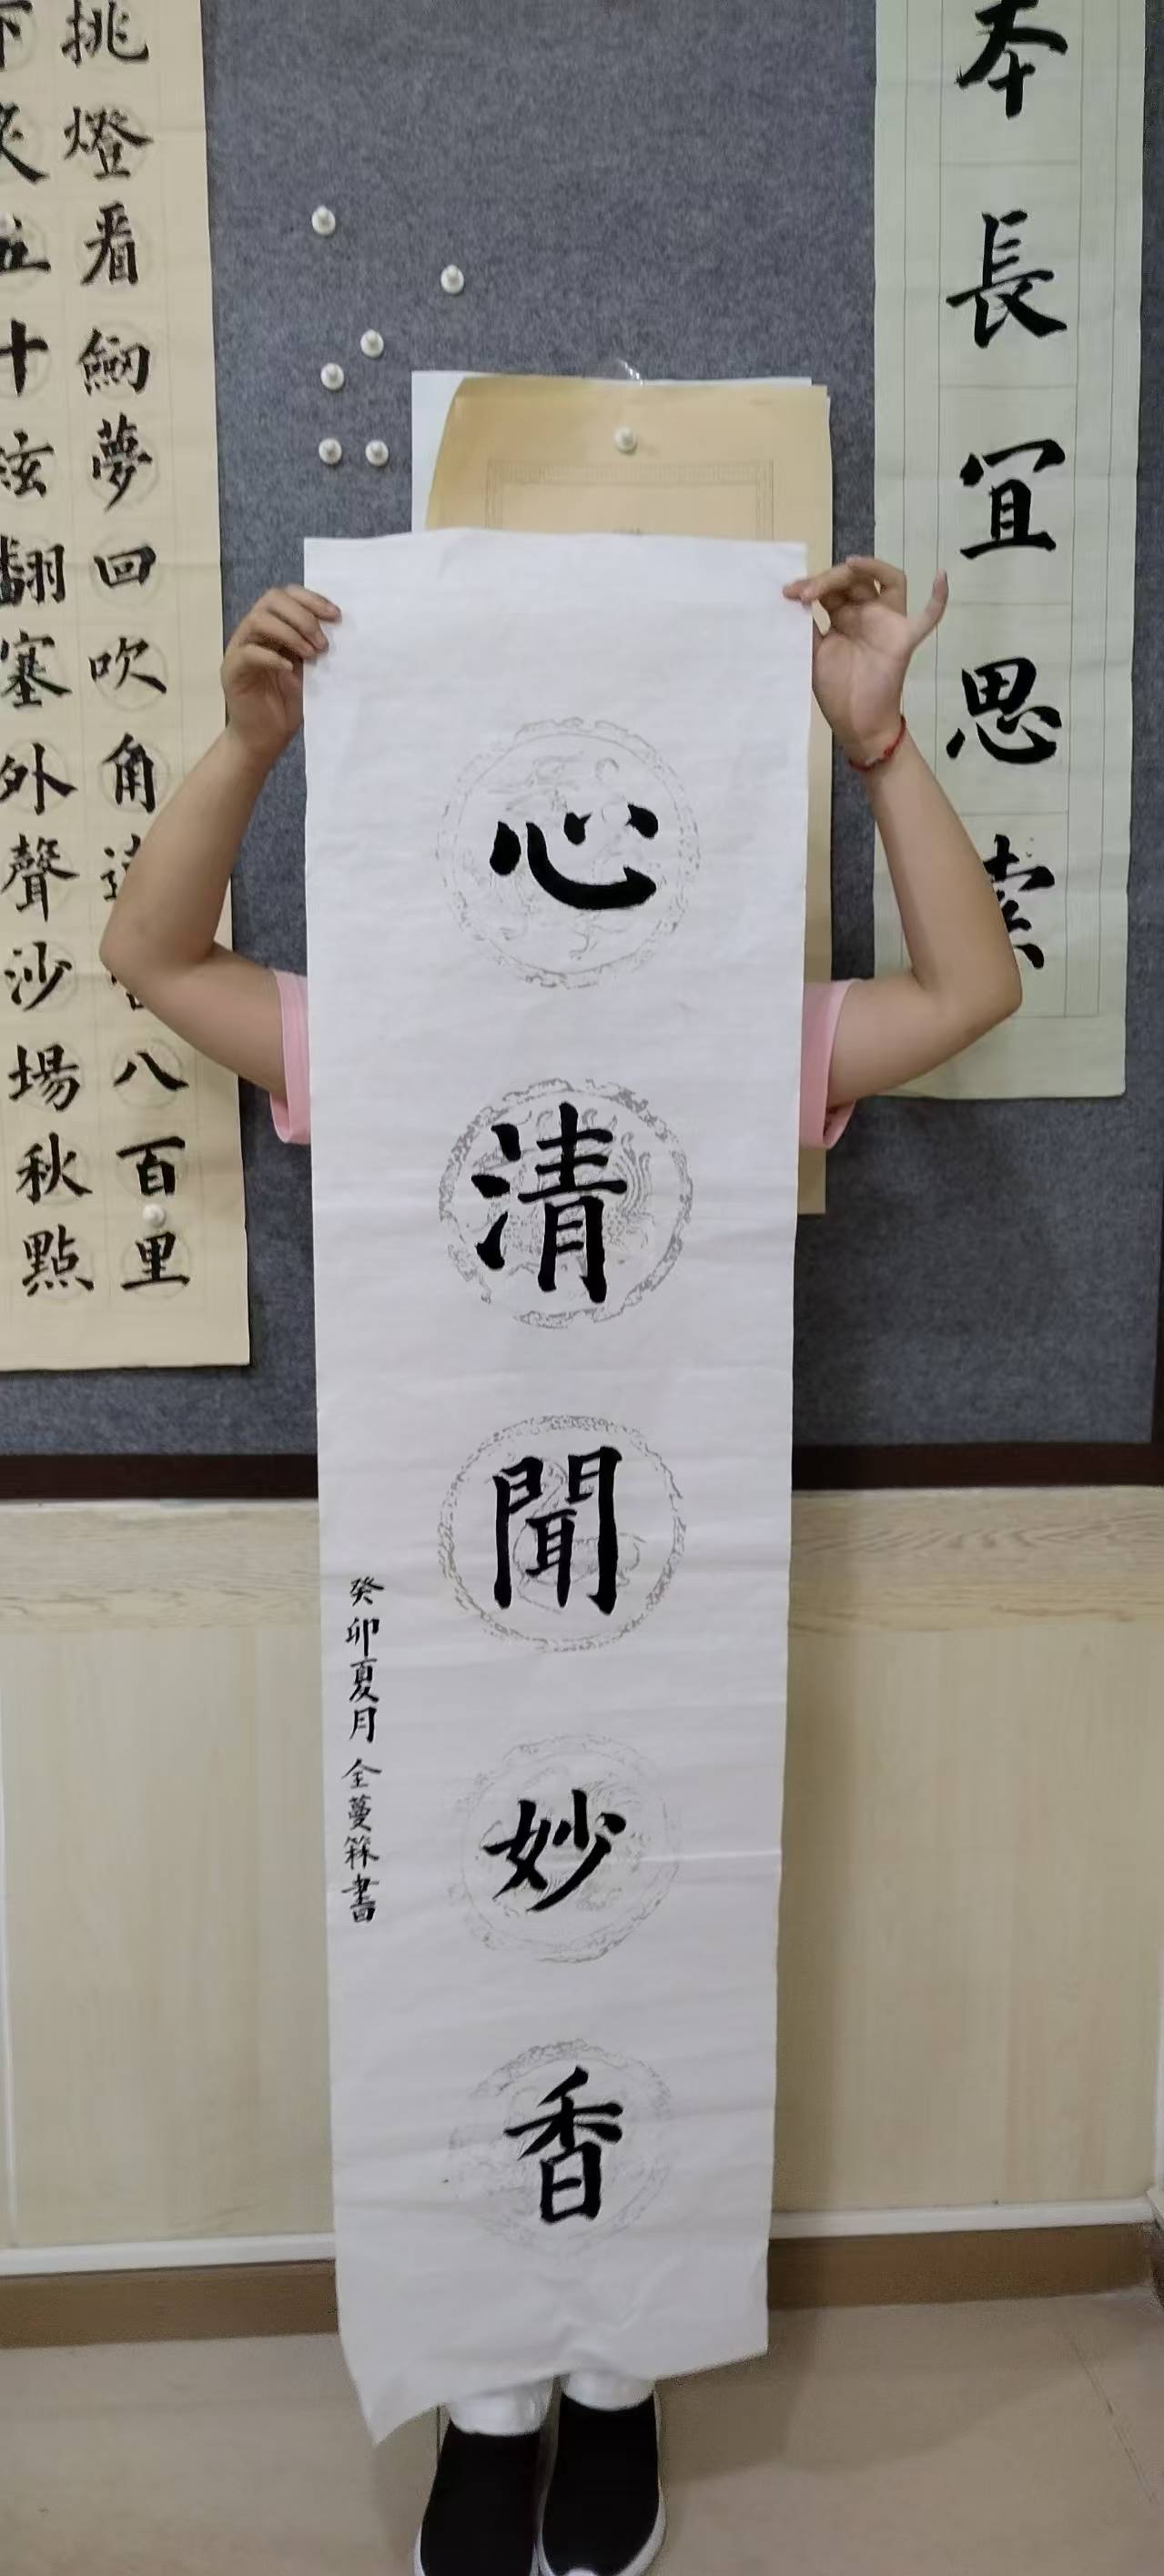 本長宜思索
心清聞妙香
癸卯夏月 全蔓書
挑燈看劒夢回吹角連八百里
下炙五十絃翻塞外聲沙場秋點